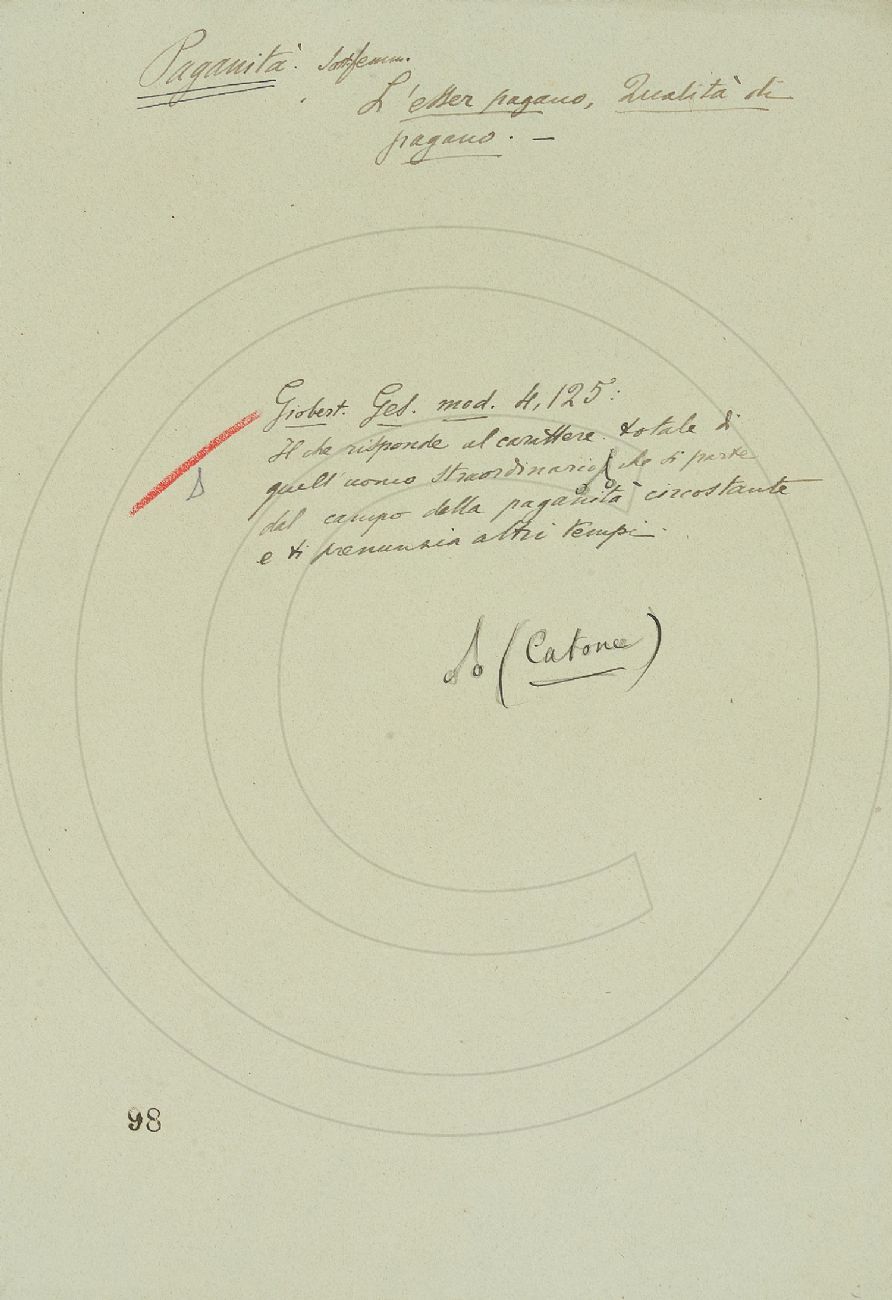 Paganità. Sost. femm.
L'esser pagano, Qualità di
pagano. —
Giobert. Ges. mod. 4, 125:
Il che risponde al carattere totale di
quell'uomo straordinario che si parte
dal campo della paganità circostante
e ti prenunzia altri tempi.
(Catone)
98